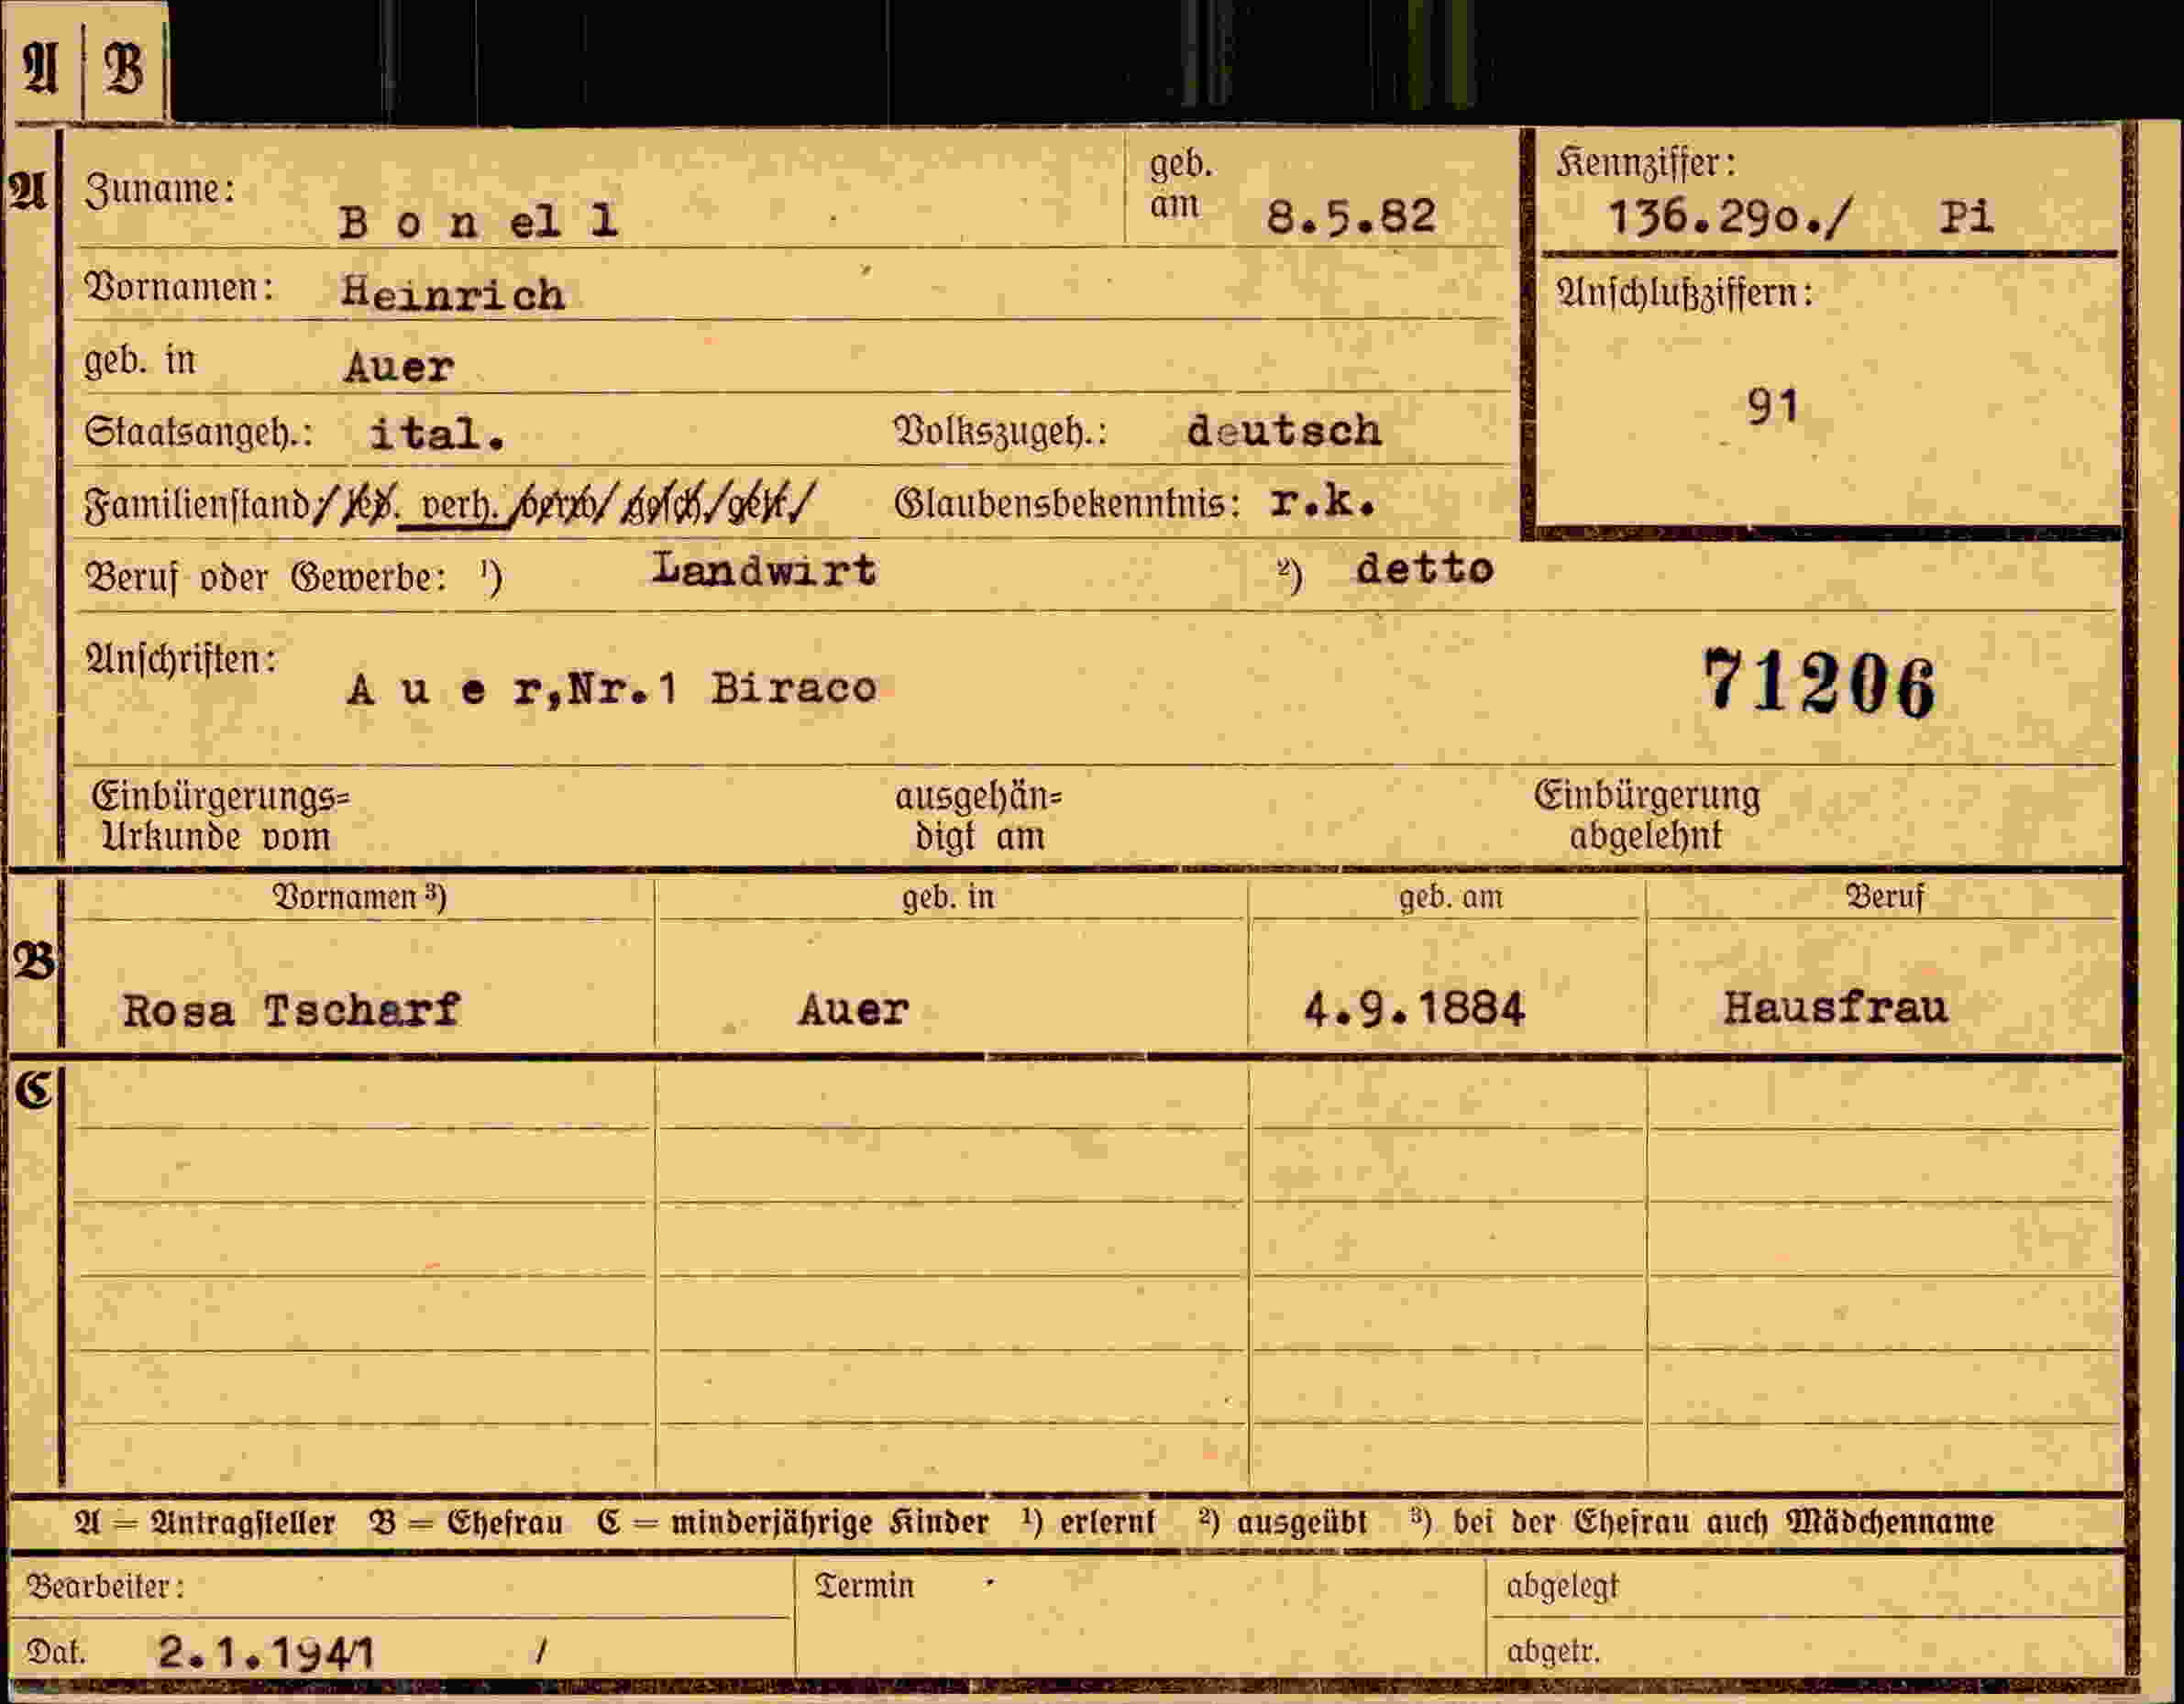 A | B
A
Zuname: B o n el l
geb. am 8.5.82
Kennziffer: 136.290./ Pi
Vornamen: Heinrich
Anschlußziffern: 91
geb. in Auer
Staatsangeh.: ital. Volkszugeh.: deutsch
Familienstand: led. verh. verw. gesch. getr. Glaubensbekenntnis: r.k.
Beruf oder Gewerbe: ¹) Landwirt ²) detto
Anschriften: A u e r,Nr.1 Biraco
71206
Einbürgerungs=
Urkunde vom
ausgehän=
digt am
Einbürgerung
abgelehnt
Vornamen ³) geb. in geb. am Beruf
B
Rosa Tscharf Auer 4.9.1884 Hausfrau
C
A = Antragsteller B = Ehefrau C = minderjährige Kinder ¹) erlernt ²) ausgeübt ³) bei der Ehefrau auch Mädchenname
Bearbeiter: Termin abgelegt
Dat. 2.1.1941 / abgetr.